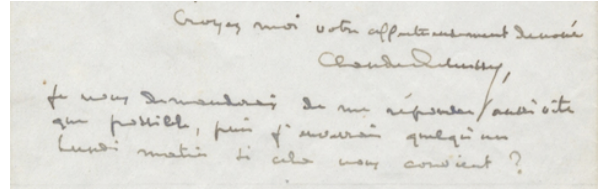 Croyez moi votre affectueusement dévoué
Claude Debussy,
Je vous demanderai de me répondre aussi vite
que possible, puis j'enverrai quelqu'un
Lundi matin si cela vous convient ?